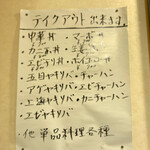 テイクアウト出来ます。
・中華丼 ・マーボー丼
・カニ玉丼 ・玉子丼
・エビチリ丼 ・ホイコーロー丼
・五目ヤキソバ・チャーハン
・アゲヤキソバ・エビチャーハン
・上海ヤキソバ・カニチャーハン
・エビヤキソバ
・他 単品料理各種